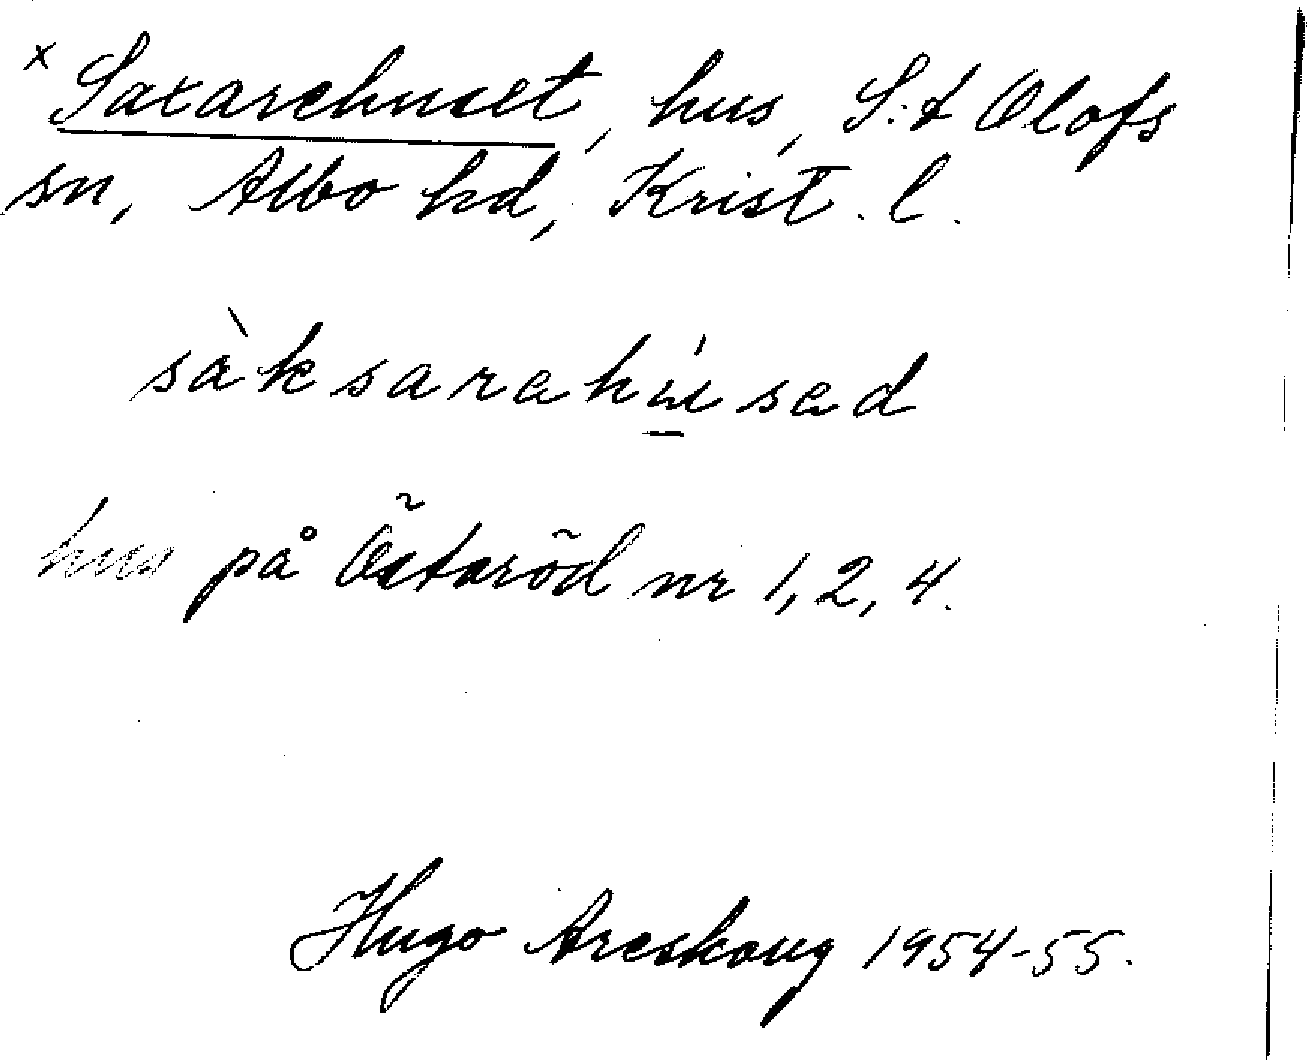 x Saxarehuset, hus, S:t Olofs
sn, Albo hd, Krist. l.
sàksarahúsad
hus på Östaröd nr 1, 2, 4.
Hugo Areskoug 1954-55.